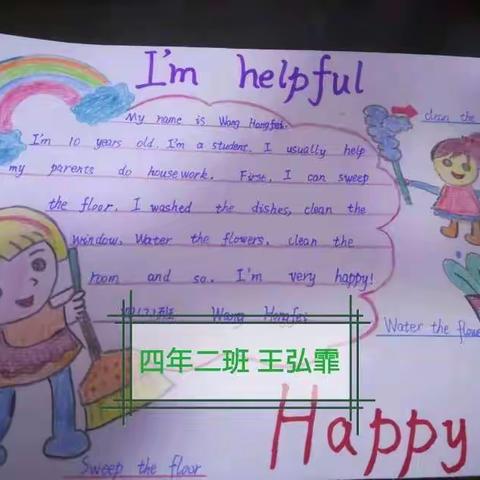 I'm helpful
clean the
My name is Wang Hongfei.
I'm 10 years old. I'm a student. I usually help
my parents do housework. First, I can sweep
the floor. I washed the dishes, clean the
window, Water the flowers, clean the
room and so. I'm very happy!
Hongfei
四年二班 王弘霏
Water the flowe
Happy
Sweep the floor